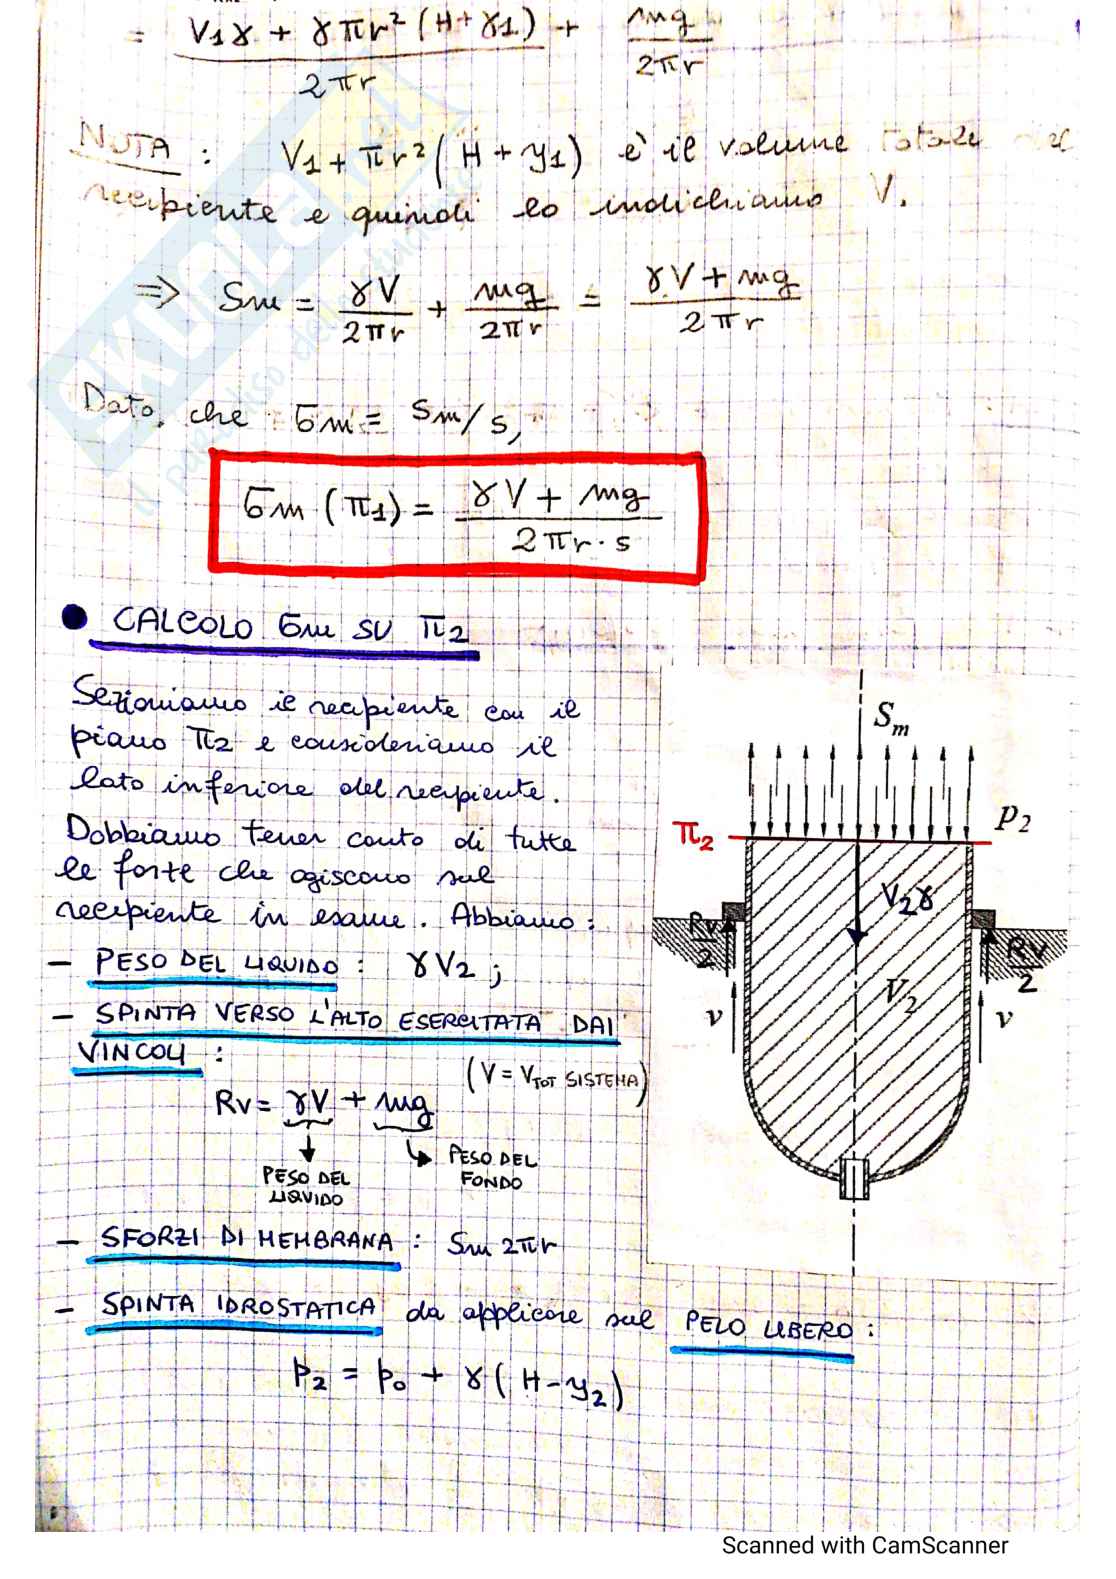 = V1γ + γπr² (H+γ1) / 2πr + mg / 2πr
NOTA : V1 + πr² ( H + y1) è il volume totale
recipiente e quindi lo indichiamo V.
⇒ Sm = γV / 2πr + mg / 2πr = γV + mg / 2πr
Dato, che σm = Sm/s,
σm (π1) = γV + mg / 2πr·s
● CALCOLO σm SU π2
Sezioniamo il recipiente con il
piano π2 e consideriamo il
lato inferiore del recipiente.
Dobbiamo tener conto di tutte
le forze che agiscono sul
recipiente in esame. Abbiamo:
– PESO DEL LIQUIDO : γV2 ;
– SPINTA VERSO L'ALTO ESERCITATA DAI
VINCOLI :
(V = VTOT SISTEMA)
Rv = γV + mg
PESO DEL
LIQUIDO
PESO DEL
FONDO
– SFORZI DI MEMBRANA : Sm 2πr
– SPINTA IDROSTATICA da applicare sul PELO LIBERO :
p2 = p0 + γ ( H – y2 )
Sm
p2
π2
V2γ
Rv/2
Rv/2
V2
v
v
SKUOLA.net
il paradiso dello studente
Scanned with CamScanner